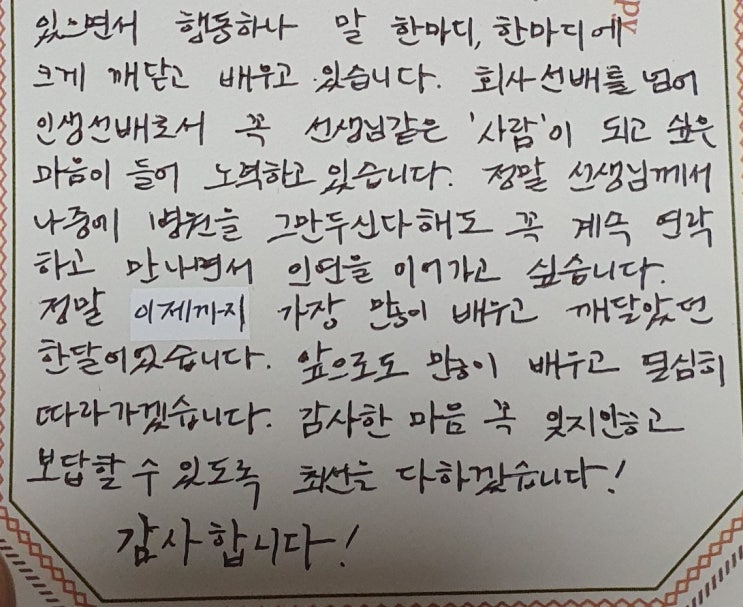 있으면서 행동하나 말 한마디, 한마디에
크게 깨닫고 배우고 있습니다. 회사선배를 넘어
인생선배로서 꼭 선생님같은 '사람'이 되고 싶은
마음이 들어 노력하고 있습니다. 정말 선생님께서
나중에 병원을 그만두신다해도 꼭 계속 연락
하고 만나면서 인연을 이어가고 싶습니다.
정말 이제까지 가장 많이 배우고 깨달았던
한달이었습니다. 앞으로도 많이 배우고 열심히
따라가겠습니다. 감사한 마음 꼭 잊지않고
보답할 수 있도록 최선을 다하겠습니다!
감사합니다!